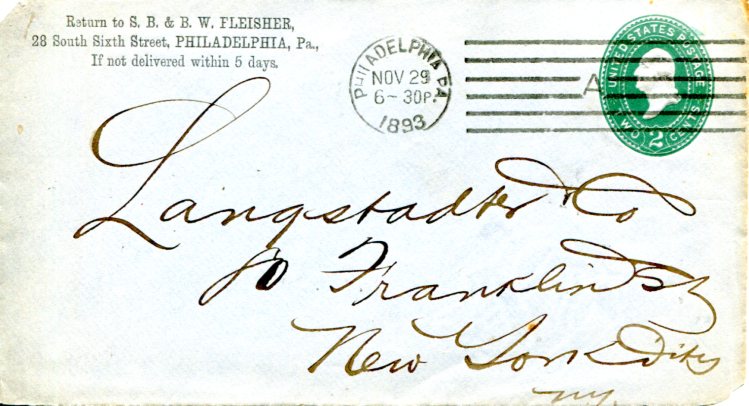 Return to S. B. & B. W. FLEISHER,
28 South Sixth Street, PHILADELPHIA, Pa.,
If not delivered within 5 days.
PHILADELPHIA PA.
NOV 29
6-30P.
1893
A
UNITED STATES POSTAGE
TWO 2 CENTS
Langstadter & Co
80 Franklin St
New York City
NY.